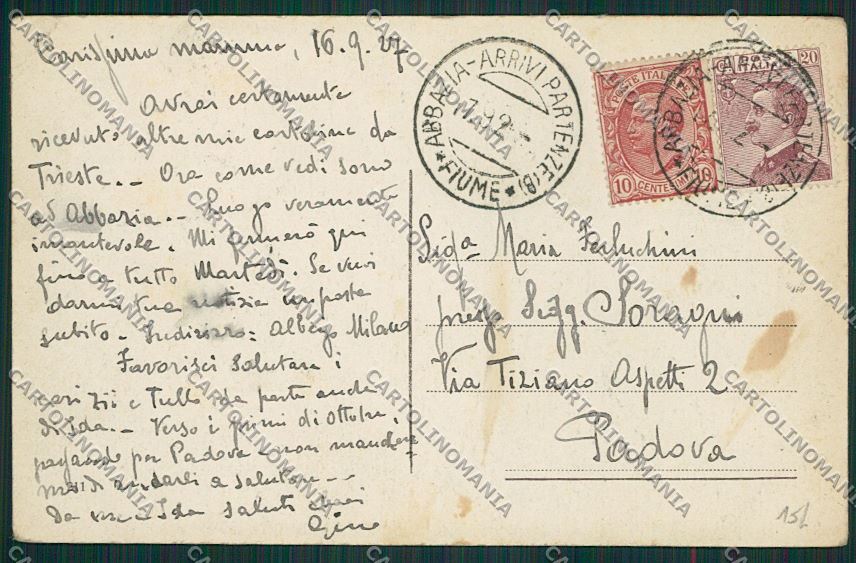 Carissima mamma, 16.9.27
Avrai certamente
ricevuto altre mie cartoline da
Trieste.- Ora come vedi sono
a S Abbazia.- Luogo veramente
incantevole. Mi fermerò qui
fino a tutto Martedì. Se vuoi
darmi tua notizia imposta
subito - Indirizzo: Albergo Milano
Favorisci salutare i
zii e Tullo da parte anche
di Ida.- Verso i primi di Ottobre,
passando per Padova non mancherò
di andarli a salutare -
Da me e Ida saluti cari
Gino
ABBAZIA-ARRIVI PARTENZE (B)
* FIUME *
POSTE ITALIANE
10 CENTESIMI 10
20
Sig.a Maria
presso Sigg. Soragni
Via Tiziano Aspetti 2
Padova
15L
CARTOLINOMANIA